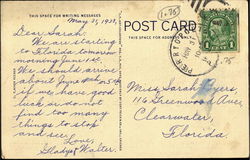 THIS SPACE FOR WRITING MESSAGES
POST CARD
May 31, 1938.
Dear Sarah:
We are starting
to Florida tomorrow
morning June 1st.
We should arrive
about June
if we have good
luck & do not
find too many
things to stop
and see.
Love,
Gladys & Walter.
THIS SPACE FOR ADDRESS ONLY
1
Miss Sarah Byers,
116 Greenwood Ave.
Clearwater,
Florida.